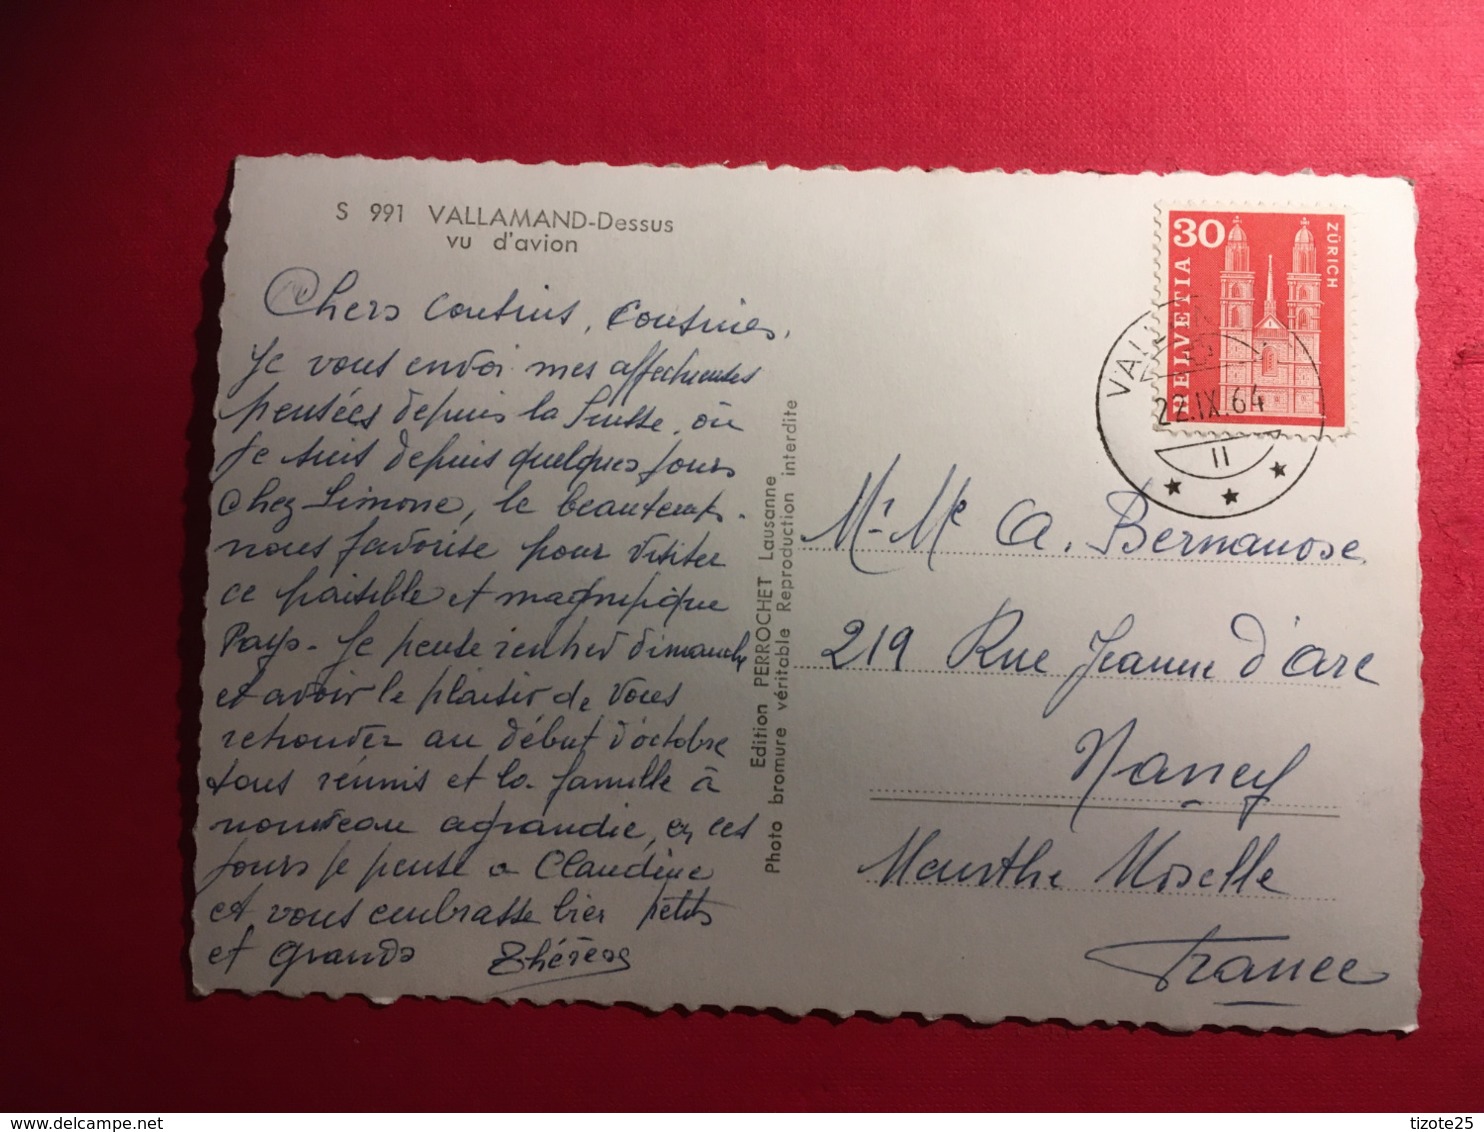 S 991 VALLAMAND-Dessus
vu d'avion
Chers Cousins, Cousines,
Je vous envoi mes affectueuses
pensées depuis la Suisse, où
je suis depuis quelques jours
chez Simone, le beautemps
nous favorise pour visiter
ce paisible et magnifique
Pays. Je pense rentrer dimanche
et avoir le plaisir de vous
retrouver au début d'octobre
tous réunis et la famille à
nouveau agrandie, en ces
jours je pense a Claudine
et vous embrasse bien petits
et Grands Thérèse
Edition PERROCHET Lausanne
Photo bromure véritable Reproduction interdite
30
HELVETIA
ZÜRICH
22.IX.64
11
Mr Me A. Bernanose
219 Rue Jeanne d'Arc
Nancy
Meurthe Moselle
France
tizote25